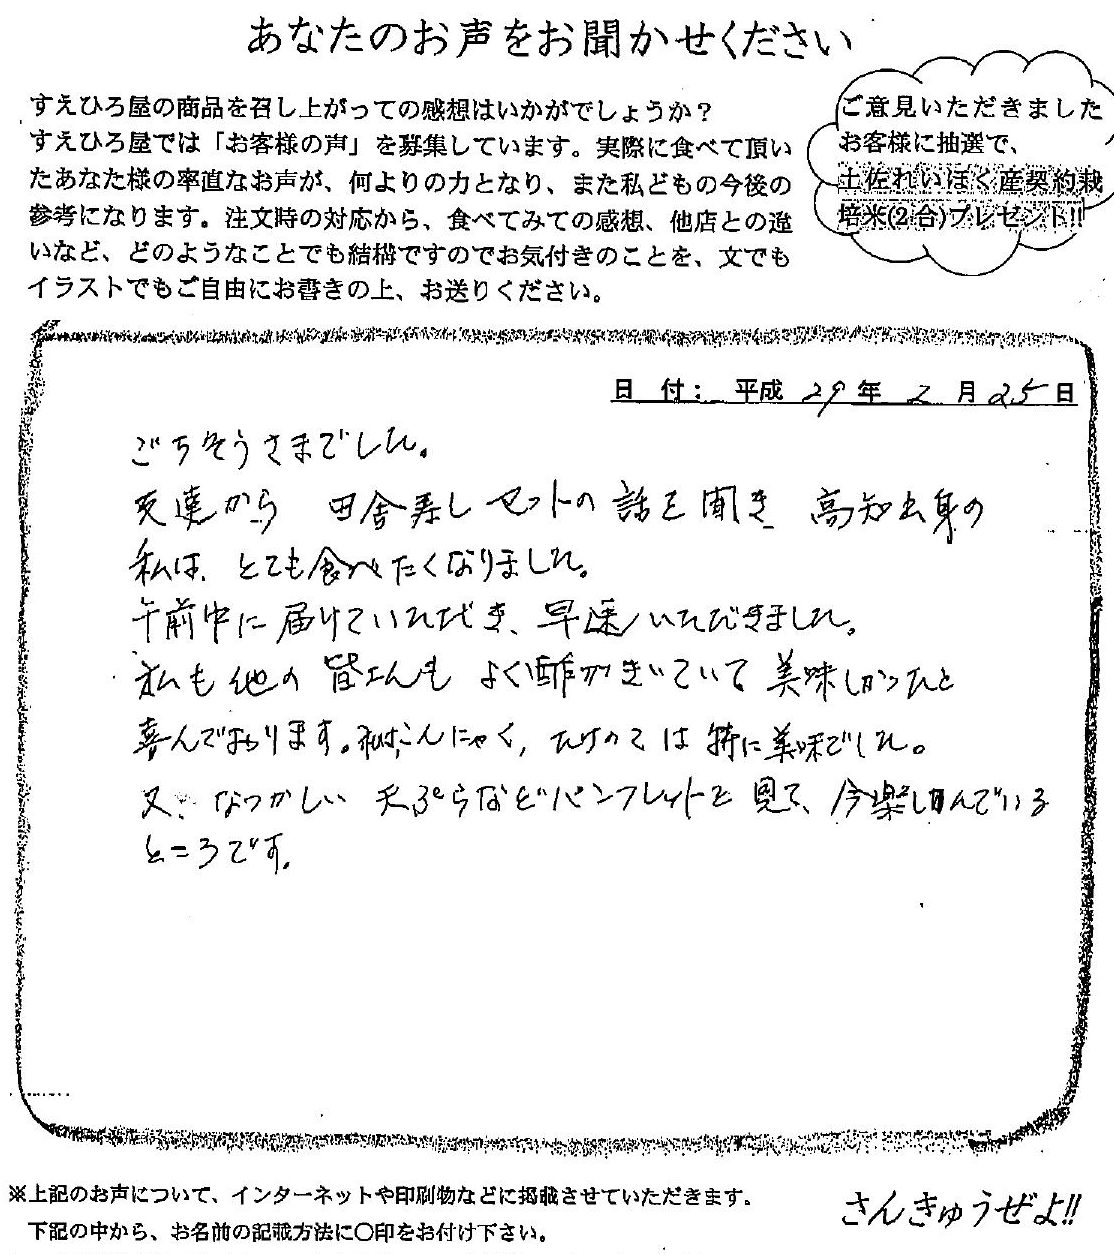 あなたのお声をお聞かせください
すえひろ屋の商品を召し上がっての感想はいかがでしょうか？
すえひろ屋では「お客様の声」を募集しています。実際に食べて頂い
たあなた様の率直なお声が、何よりの力となり、また私どもの今後の
参考になります。注文時の対応から、食べてみての感想、他店との違
いなど、どのようなことでも結構ですのでお気付きのことを、文でも
イラストでもご自由にお書きの上、お送りください。
ご意見いただきました
お客様に抽選で、
土佐れいほく産契約栽
培米(2合)プレゼント!!
日 付： 平成 29年 2月 25日
ごちそうさまでした。
友達から 田舎寿しセットの話を聞き 高知出身の
私は、とても食べたくなりました。
午前中に届けていただき、早速いただきました。
私も他の皆さんも よく酢がきいていて 美味しかったと
喜んでおります。私は、こんにゃく, たけのこは特に美味でした。
又、なつかしい 天ぷらなどパンフレットを見て、今楽しんでいる
ところです。
※上記のお声について、インターネットや印刷物などに掲載させていただきます。
下記の中から、お名前の記載方法に〇印をお付け下さい。
さんきゅうぜよ!!